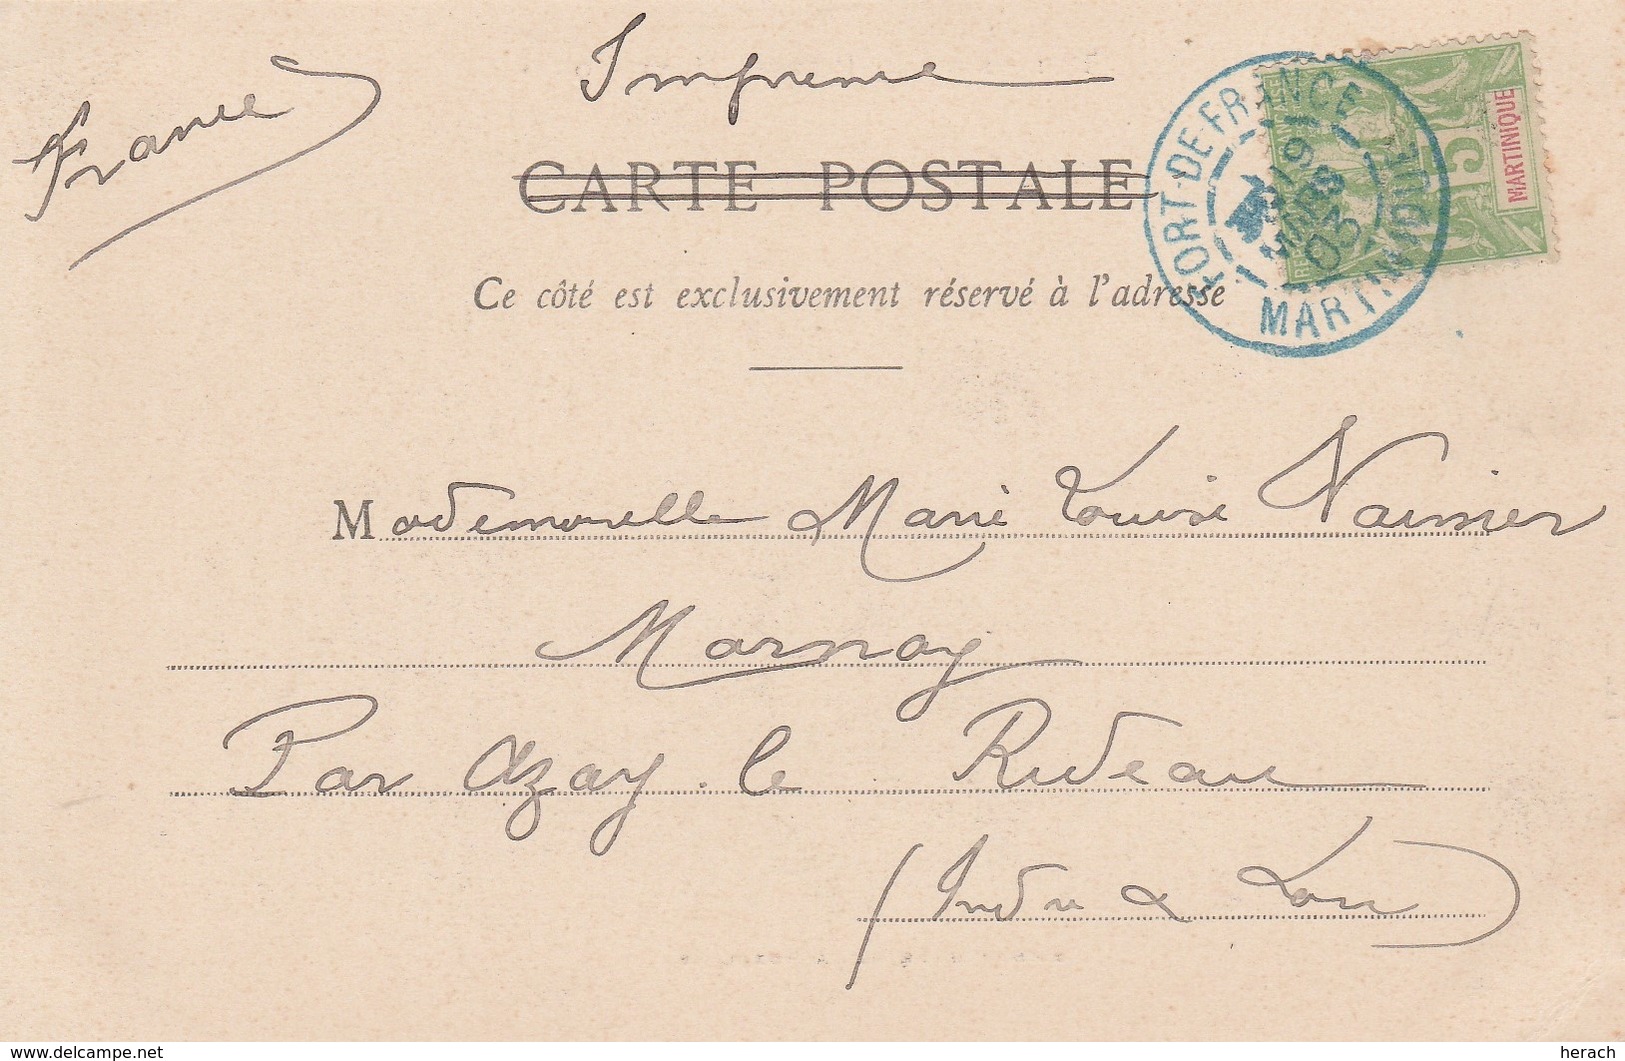 Imprimé
France
CARTE POSTALE
Ce côté est exclusivement réservé à l'adresse
FORT-DE-FRANCE
MARTINIQUE
03
MARTINIQUE
5
Mademoiselle Marie Louise
Marnay
Par Azay-le Rideau
(Indre & Loire)
www.delcampe.net
herach